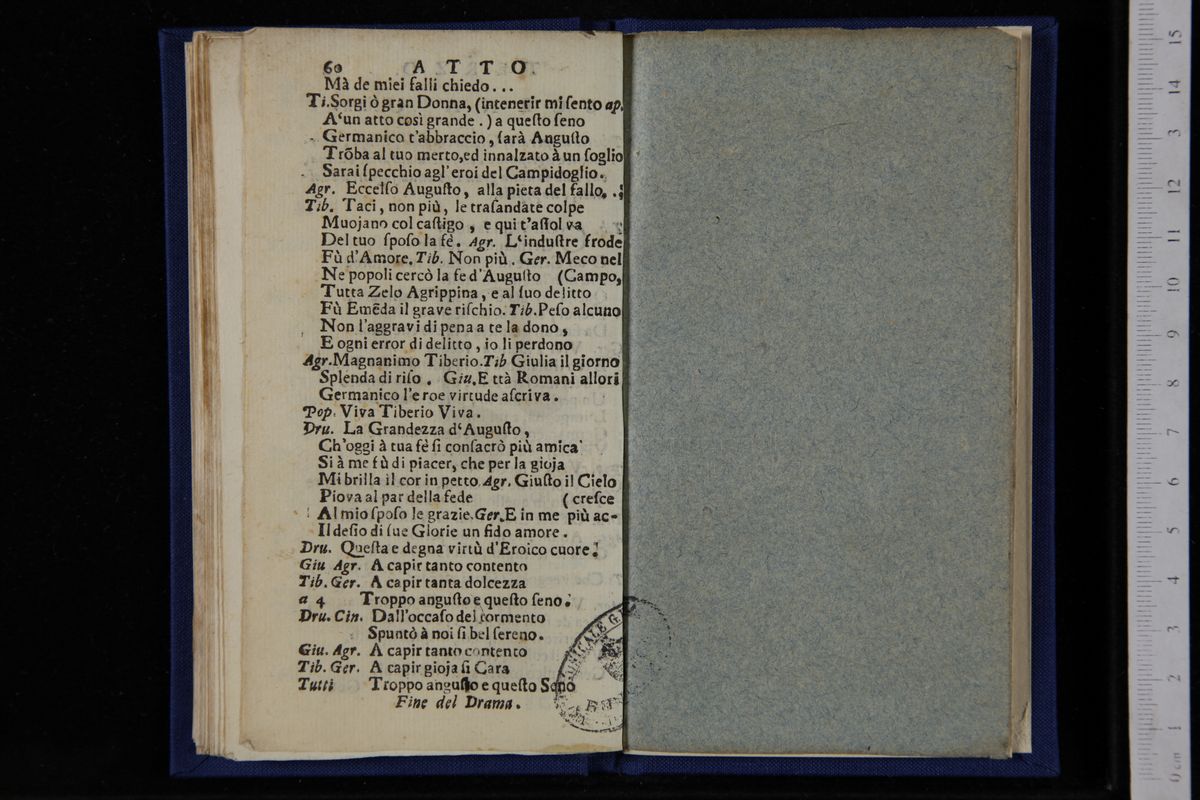 60 ATTO
Mà de miei falli chiedo...
Ti. Sorgi ò gran Donna, (intenerir mi ſento ap.
A‘un atto così grande.) a queſto ſeno
Germanico t'abbraccio, ſarà Anguſto
Trõba al tuo merto, ed innalzato à un ſoglio
Sarai ſpecchio agl'eroi del Campidoglio.
Agr. Eccelſo Auguſto, alla pieta del fallo. .;
Tib. Taci, non più, le traſandate colpe
Muojano col caſtigo, e qui t'aſſolva
Del tuo ſpoſo la fè. Agr. L‘induſtre frode
Fù d'Amore. Tib. Non più. Ger. Meco nel
Ne popoli cercò la fe d'Auguſto (Campo,
Tutta Zelo Agrippina, e al ſuo delitto
Fù Emẽda il grave riſchio. Tib. Peſo alcuno
Non l'aggravi di pena a te la dono,
E ogni error di delitto, io li perdono
Agr. Magnanimo Tiberio. Tib Giulia il giorno
Splenda di riſo. Giu. E ttà Romani allori
Germanico l'eroe virtude aſcriva.
Pop. Viva Tiberio Viva.
Dru. La Grandezza d‘Auguſto,
Ch'oggi à tua fè ſi conſacrò più amica
Si à me fù di piacer, che per la gioja
Mi brilla il cor in petto. Agr. Giuſto il Cielo
Piova al par della fede (creſce
Al mio ſpoſo le grazie. Ger. E in me più ac-
Il deſio di ſue Glorie un fido amore.
Dru. Queſta e degna virtù d'Eroico cuore.
Giu Agr. A capir tanto contento
Tib. Ger. A capir tanta dolcezza
a 4 Troppo anguſto e queſto ſeno.
Dru. Cin. Dall'occaſo del tormento
Spuntò à noi ſi bel ſereno.
Giu. Agr. A capir tanto contento
Tib. Ger. A capir gioja ſi Cara
Tutti Troppo anguſto e queſto Seno
Fine del Drama.
15
14
13
12
11
10
9
8
7
6
5
4
3
2
1
0 cm